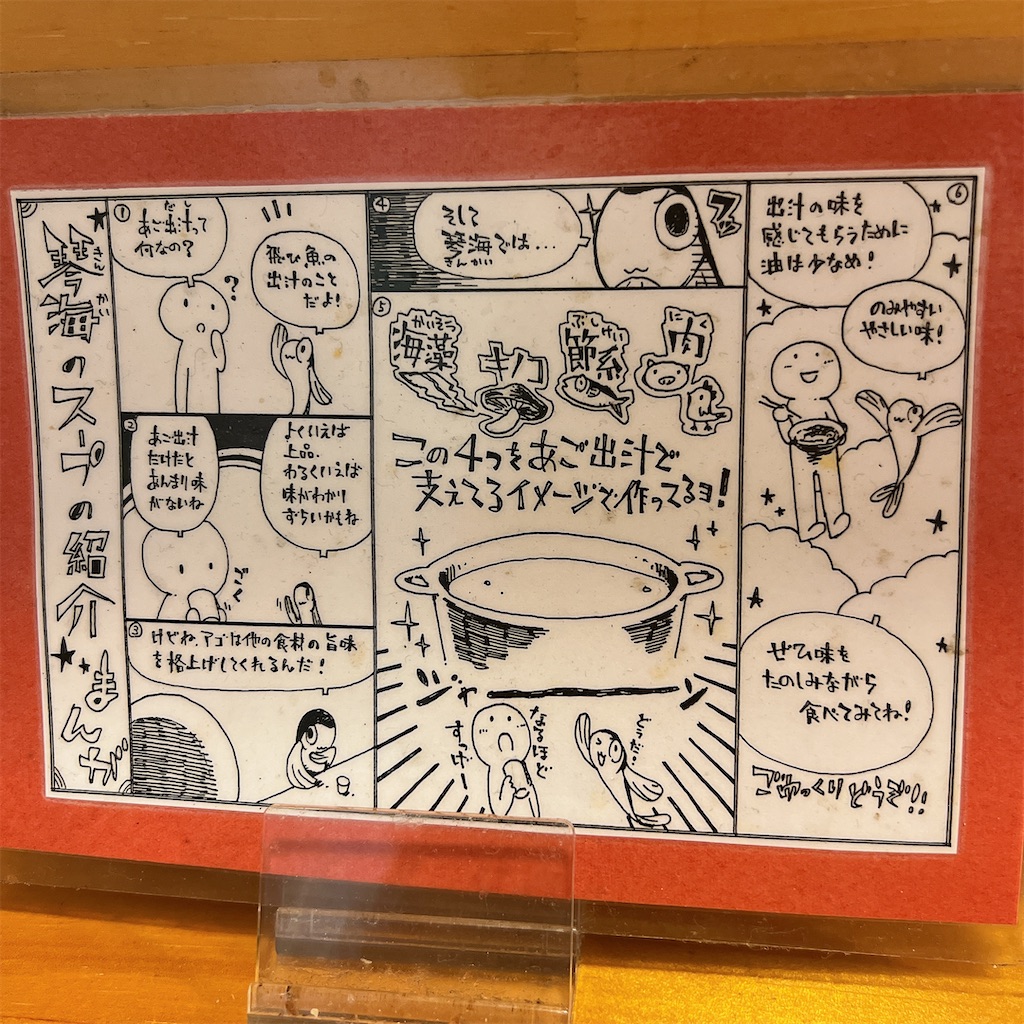 琴海のスープの紹介★まんが
きん
かい
①
あご出汁って
だし
何なの？
?
飛び魚の
出汁のこと
だよ！
②
あご出汁
だけだと
あんまり味
がないね
よくいえば
上品、
わるくいえば
味がわかり
ずらいかもね
③
けどね、アゴは他の食材の旨味
を格上げしてくれるんだ！
④
そして
琴海では...
きんかい
⑤
かいそう
海藻
キノコ
ぶしけい
節系
にく
肉
この4つをあご出汁で
支えてるイメージで作ってるヨ！
ジャーン
なるほど
すっげー
どうだ！
⑥
出汁の味を
感じてもらうために
油は少なめ！
のみやすい
やさしい味！
ぜひ味を
たのしみながら
食べてみてね！
ごゆっくりどうぞ!!